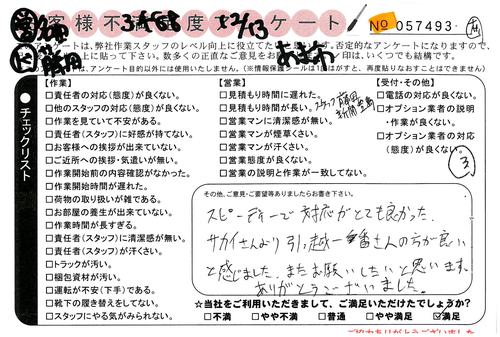 お客様不満足度アンケート
No 057493
アンケートは、弊社作業スタッフのレベル向上に役立てた
否定的なアンケートになりますので、
に上に貼って下さい。数多くの正直なご意見をお
印は、いくつでも結構です。
は、アンケート目的以外には使用いたしません。(※情報保護シールは1度はがすと、再度貼りなおすことはできません)
チェックリスト
【作業】
□責任者の対応(態度)が良くない。
□他のスタッフの対応(態度)が良くない。
□作業を見ていて不安がある。
□責任者(スタッフ)に好感が持てない。
□お客様への挨拶が出来ていない。
□ご近所への挨拶・気遣いが無い。
□作業開始前の内容確認がなかった。
□作業開始時間が遅れた。
□荷物の取り扱いが雑である。
□お部屋の養生が出来ていない。
□作業時間が長すぎる。
□責任者(スタッフ)に清潔感が無い。
□責任者(スタッフ)が汗くさい。
□トラックが汚い。
□梱包資材が汚い。
□運転が不安(下手)である。
□靴下の履き替えをしてない。
□スタッフにやる気がみられない。
【営業】
□見積もり時間に遅れた。
□見積もり時間が長い。
□営業マンに清潔感が無い。
□営業マンが煙草くさい。
□営業マンが汗くさい。
□営業態度が良くない。
□営業の説明と作業が一致してない。
【受付・その他】
□電話の対応が良くない。
□オプション業者の説明
・作業が良くない。
□オプション業者の対応
(態度)が良くない。
3
その他、ご意見・ご要望等ありましたらお書き下さい。
スピーディーで対応がとても良かった。
サカイさんより引っ越一番さんの方が良い
と感じました。またお願いしたいと思います。
ありがとうございました。
☆当社をご利用いただきまして、ご満足いただけたでしょうか?
□不満 □やや不満 □普通 □やや満足 ☑満足
ご協力ありがとうございました